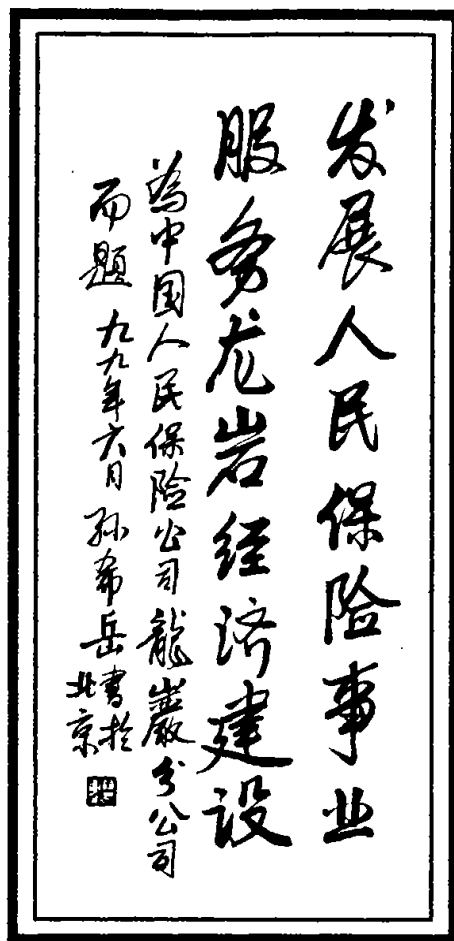 发展人民保险事业
服务龙岩经济建设
為中国人民保险公司龍巖分公司
而题 九九年六月 孙希岳書於
北京